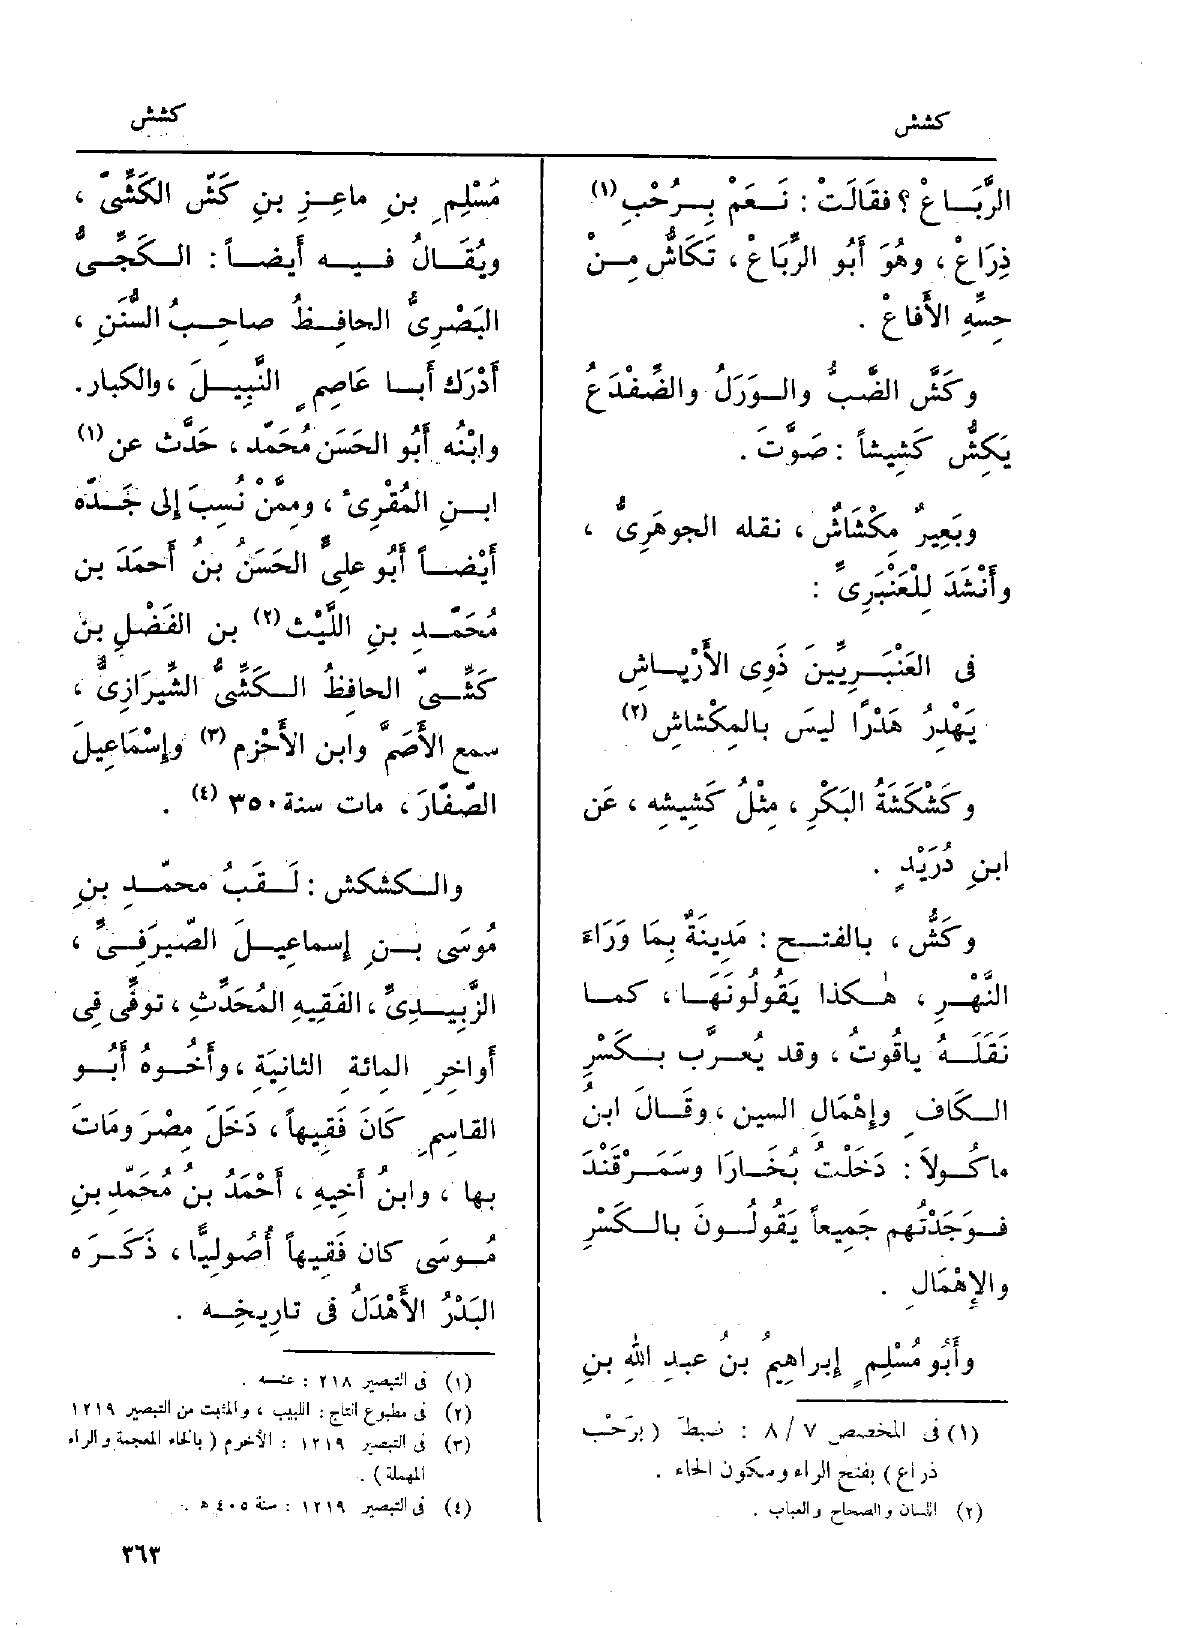 كشش
كشش
الرَّبَاعْ؟ فقَالَتْ : نَعَمْ بِرُحْبِ (١)
ذِرَاعْ، وهُوَ أَبُو الرِّبَاعْ، تَكَاشُّ مِنْ
حِسِّهِ الأَفاعْ .
وكَشَّ الضَّبُّ والوَرَلُ والضِّفْدَعُ
يَكِشُّ كَشِيشاً : صَوَّتَ .
وبَعِيرٌ مِكْشَاشٌ، نقله الجوهَرِىُّ ،
وأَنْشَدَ لِلْعَنْبَرِىِّ :
فى العَنْبَرِيِّينَ ذَوِى الأَرْيَاشِ
يَهْدِرُ هَدْرًا ليسَ بالمِكْشاشِ (٢)
وكَشْكَشَةُ البَكْرِ ، مِثْلُ كَشِيشِه ، عَن
ابنِ دُرَيْدٍ .
وكَشُّ ، بالفتح : مَدِينَةٌ بِمَا وَرَاءَ
النَّهْرِ ، هٰكذا يَقُولُونَهَا ، كما
نَقَلَهُ ياقُوتُ ، وقد يُعرَّب بكَسْرِ
الكَافِ وإِهْمَالِ السين ، وقَالَ ابنُ
ماكُولاَ : دَخَلْتُ بُخَارَا وسَمَرْقَنْدَ
فوَجَدْتُهم جَمِيعاً يَقُولُونَ بالكَسْرِ
والإِهْمَالِ .
وأَبُو مُسْلِمٍ إِبراهِيمُ بنُ عبدِ اللهِ بنِ
(١) فى المخصص ٧ / ٨ : ضبطَ (بِرَحْبِ
ذراعِ) بفتح الراء وسكون الحاء .
(٢) اللسان والصحاح والعباب .
مُسْلِمِ بنِ ماعِزِ بنِ كَشّ الكَشِّىّ ،
ويُقَالُ فيه أَيضاً : الكَجِّىُّ
البَصْرِىُّ الحافِظُ صاحِبُ السُّنَنِ ،
أَدْرَك أَبا عَاصِمٍ النَّبِيلَ ، والكبار.
وابْنُه أَبُو الحَسَن مُحَمَّد ، حَدَّث عن (١)
ابنِ المُقْرِىْ ، ومِمَّنْ نُسِبَ إِلى جَدّه
أَيْضاً أَبُو علِىٍّ الحَسَنُ بنُ أَحمَدَ بن
مُحَمَّدِ بنِ اللَّيْث (٢) بن الفَضْلِ بنِ
كَشِّىّ الحافظُ الكَشِّىُّ الشِّيرَازِىُّ ،
سمع الأَصَمَّ وابن الأَخْزم (٣) وإِسْمَاعِيلَ
الصّفّارَ ، مات سنة ٣٥٠ (٤) .
والكشكش : لَقَبُ محمّدِ بنِ
مُوسَى بنِ إِسماعِيلَ الصّيرَفِىِّ ،
الزَّبِيدِىِّ ، الفَقِيهِ المُحَدِّثِ ، توفِّى فِى
أَواخِرِ المِائةِ الثانِيَةِ ، وأَخُوهُ أَبُو
القاسِمِ كَانَ فَقِيهاً ، دَخَلَ مِصْرَ ومَاتَ
بها ، وابنُ أَخِيهِ ، أَحْمَدُ بنُ مُحَمّدِ بنِ
مُوسَى كان فَقِيهاً أُصُولِيًّا ، ذَكَرَه
البَدْرُ الأَهْدَلُ فى تاريخِه .
(١) فى التبصير ٢١٨ : عنه .
(٢) فى مطبوع التاج : اللبيب ، والمثبت من التبصير ١٢١٩
(٣) فى التبصير ١٢١٩ : الأخرم (بالخاء المعجمة والراء
المهملة) .
(٤) فى التبصير ١٢١٩ : سنة ٤٠٥ ه .
٣٦٣